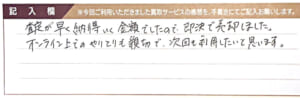 記入欄
※今回ご利用いただきました買取サービスの感想を、手書きにてご記入お願いします。
査定が早く納得いく金額でしたので、即決で売却しました。
オンライン上でのやりとりも親切で、次回も利用したいて思います。